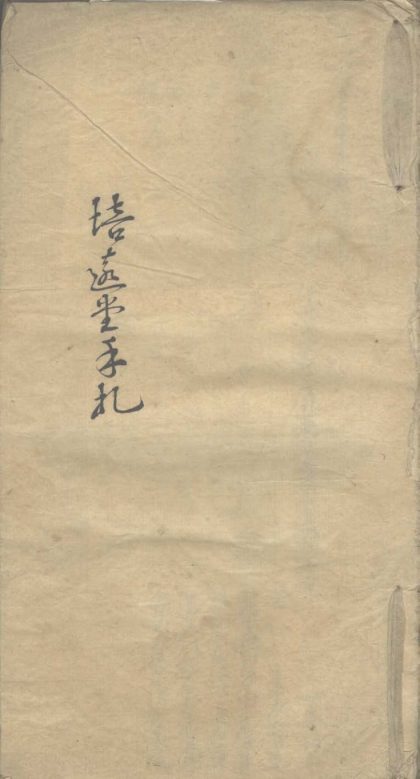 培遠堂手札